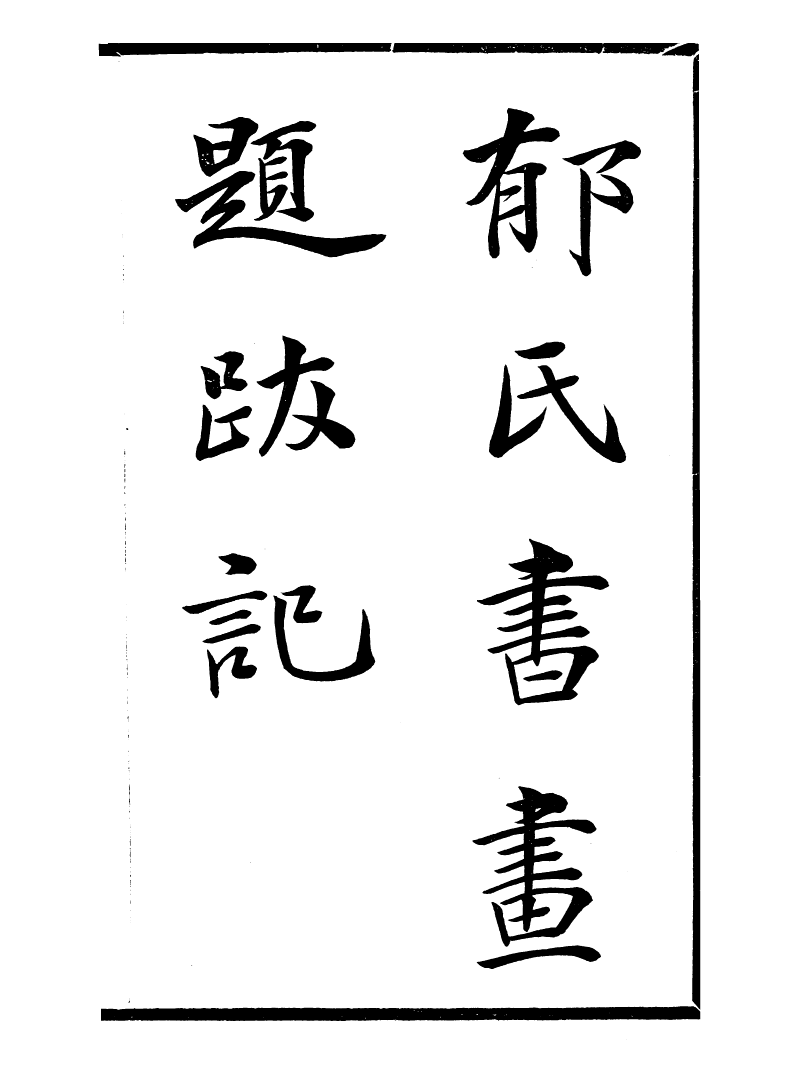 郁氏書畫
題跋記